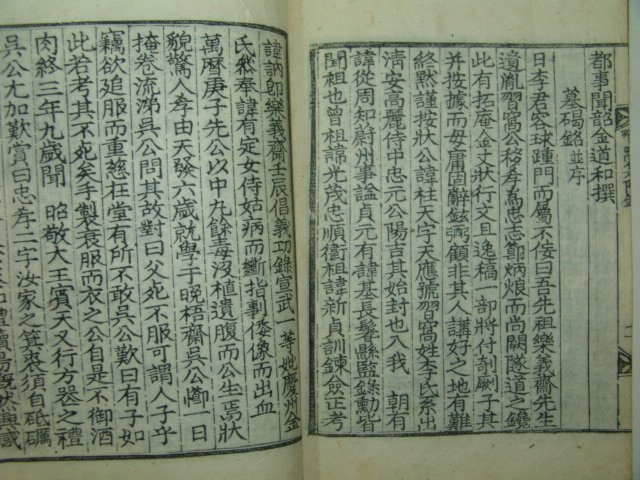 都事聞韶金道和撰
墓碣銘並序
日李君容球踵門而屬不佞曰吾先祖樂義齋先生
遺胤習窩公移孝爲忠志節炳烺而尚闕隧道之鑱
此有拓庵金丈狀行文且逸稿一部將付剞劂子其
并按據而毋庸固辭鉉弼顧非其人講好之地有難
終默謹按狀公諱柱天字天應號習窩姓李氏系出
淸安高麗侍中忠元公陽吉其始封也入我 朝有
諱從周知蔚州事諡貞元有諱基長鬐縣監錄勳皆
聞祖也曾祖諱光茂忠順衛祖諱新貞訓鍊僉正考
諱訥即樂義齋壬辰倡義功錄宣武 妣慶州金
氏 奉諱有定女侍姑病而斷指刲 像而出血
萬曆庚子先公以中丸餘毒沒植遺腹而公生焉狀
貌驚人孝由天發六歲就學于晚梧齋吳公 一日
掩卷流涕吳公問其故對曰父死不服可謂人子乎
竊欲追服而重慈在堂有所不敢吳公歎曰有子如
此若考其不死矣手製衰服而衣之公自是不御酒
肉終三年九歲聞 昭敬大王賓天又行方喪之禮
吳公尤加歎賞曰忠孝二字汝家之箕裘須自砥礪